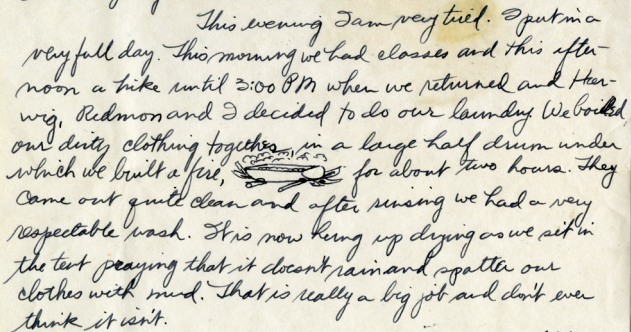 This evening I am very tired. I put in a
very full day. This morning we had classes and this after-
noon a hike until 3:00 PM when we returned and Heer-
wig, Redmon and I decided to do our laundry. We boiled
our dirty clothing together in a large half drum under
which we built a fire, for about two hours. They
came out quite clean and after rinsing we had a very
respectable wash. It is now hung up drying as we sit in
the tent praying that it doesn't rain and spatter our
clothes with mud. That is really a big job and don't ever
think it isn't.